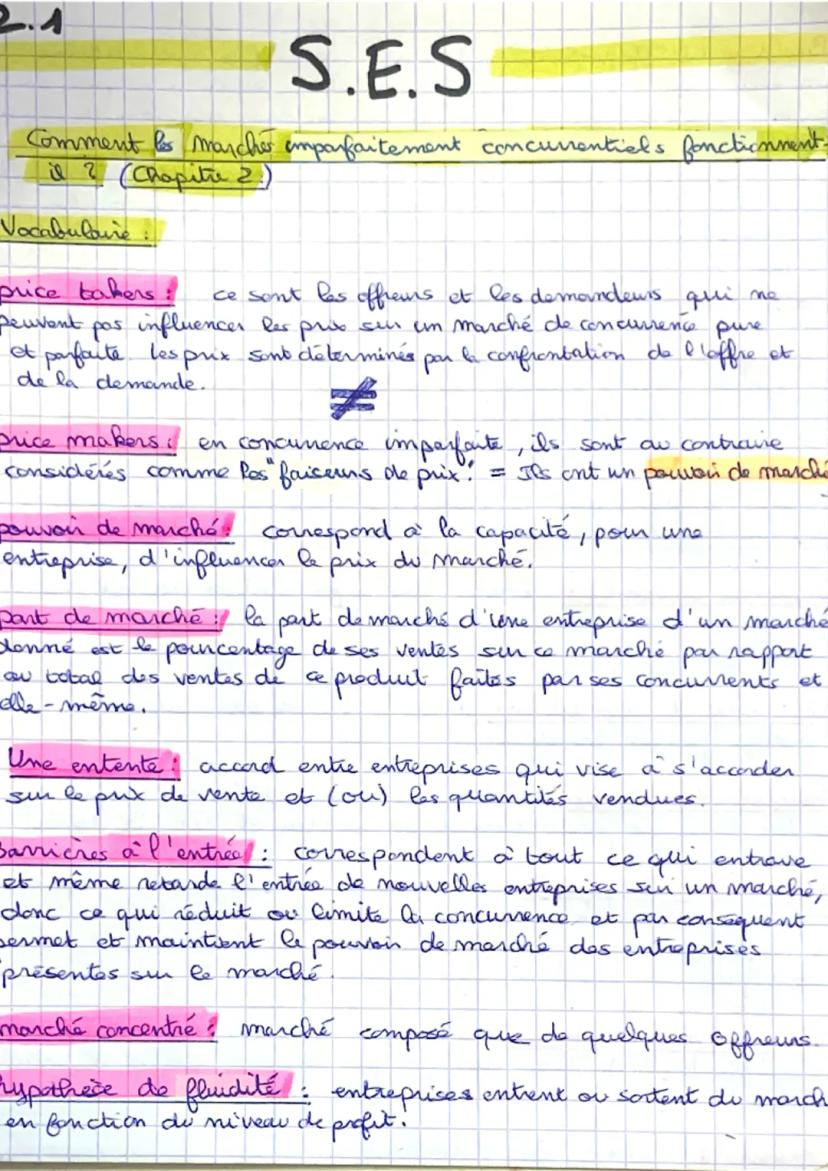 2.1
S.E.S
Comment les marchés imparfaitement concurrentiels fonctionnent-
il ? (Chapitre 2)
Vocabulaire :
price takers : ce sont les offreurs et les demandeurs qui ne
peuvent pas influencer les prix sur un marché de concurrence pure
et parfaite. les prix sont déterminés par la confrontation de l'offre et
de la demande.
≠
price makers : en concurrence imparfaite, ils sont au contraire
considérés comme les "faiseurs de prix". = Ils ont un pouvoir de marché
pouvoir de marché : correspond à la capacité, pour une
entreprise, d'influencer le prix du marché.
part de marché : la part de marché d'une entreprise d'un marché
donné est le pourcentage de ses ventes sur ce marché par rapport
au total des ventes de ce produit faites par ses concurrents et
elle-même.
Une entente : accord entre entreprises qui vise à s'accorder
sur le prix de vente et (ou) les quantités vendues.
Barrières à l'entrée : correspondent à tout ce qui entrave
et même retarde l'entrée de nouvelles entreprises sur un marché,
donc ce qui réduit ou limite la concurrence et par conséquent
permet et maintient le pouvoir de marché des entreprises
présentes sur le marché.
marché concentré : marché composé que de quelques offreurs.
hypothèse de fluidité : entreprises entrent ou sortent du march
en fonction du niveau de profit.